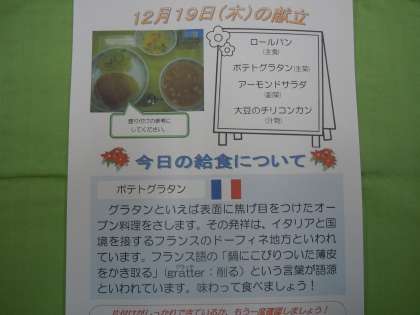 12月19日(木)の献立
ロールパン
(主食)
ポテトグラタン(主菜)
アーモンドサラダ
(副菜)
大豆のチリコンカン
(汁物)
盛り付けの参考に
してください。
今日の給食について
ポテトグラタン
グラタンといえば表面に焦げ目をつけたオー
ブン料理をさします。その発祥は、イタリアと国
境を接するフランスのドーフィネ地方といわれ
ています。フランス語の「鍋にこびりついた薄皮
をかき取る」(gratter：削る)という言葉が語源
といわれています。味わって食べましょう！
片付けがしっかりできているか、もう一度確認しましょう！